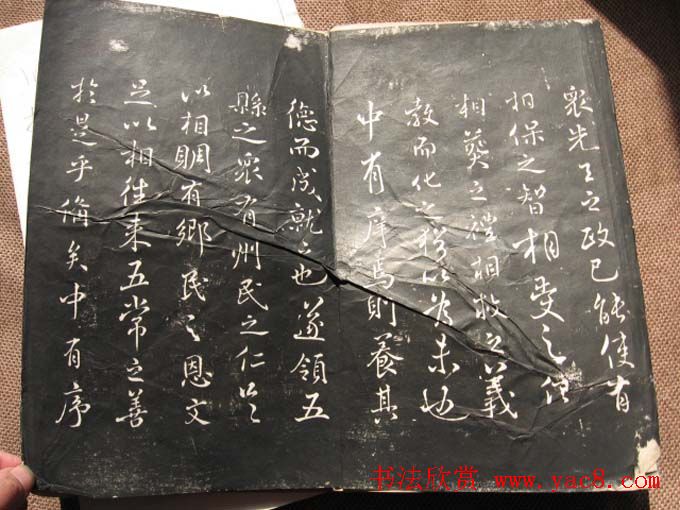 眾先王之政已能使有
相保之智相受之信
相葬之禮相救之義
教而化之猶以為未也
中有序焉則養其
德而成就之也遂領五
縣之眾有州民之仁足
以相賙有鄉民之恩文
足以相往来五常之善
於是乎備矣中有序
书法欣赏 www.yac8.com